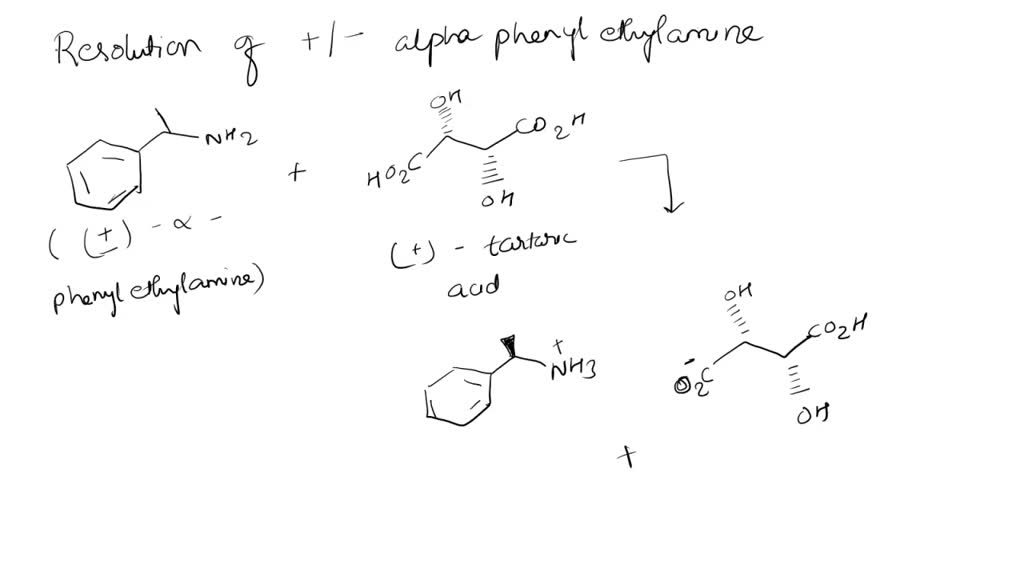 Resolution of +/- alpha phenyl ethylamine
OH
NH2
+
HO2C
CO2H
OH
( (±) - α -
phenyl ethylamine)
(+) - tartaric
acid
OH
+
NH3
-
O2C
CO2H
OH
+